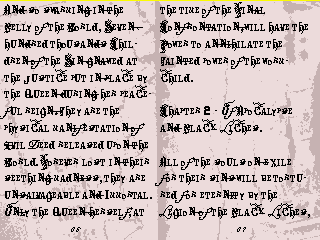 and so swarming in the
belly of the world, seven-
hundred thousand chil-
dren of the sin gnawed at
the justice put in place by
the queen during her peace-
ful reign. They are the
physical manifestation of
evil deed released upon the
world. Forever lost in their
seething madness, they are
unsalvageable and immortal.
Only the queen herself, at
66
the time of the final
confrontation, will have the
power to annihilate the
tainted power of the worm-
child.
Chapter 2 - Of Apocalypse
and Black Liches.
All of the souls on exile
for their sins will be tortu-
red for eternity by the
Liquid of the Black Liches,
67